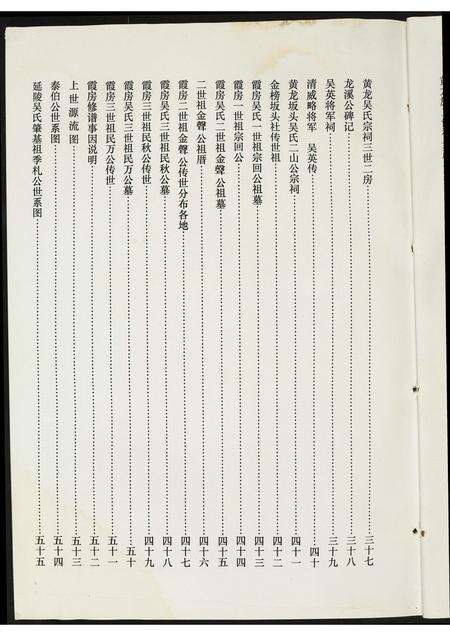 黄龙吴氏宗祠三世二房……三十七
龙溪公碑记……三十八
吴英将军祠……三十九
清威略将军 吴英传……四十
黄龙坂头吴氏二山公宗祠……四十一
金榜坂头社传世祖……四十二
霞房吴氏一世祖宗回公祖墓……四十三
霞房一世祖宗回公……四十四
霞房吴氏二世祖金聲公祖墓……四十五
二世祖金聲公祖厝……四十六
霞房二世祖金聲公传世分布各地……四十七
霞房吴氏三世祖民秋公墓……四十八
霞房三世祖民秋公传世……四十九
霞房吴氏三世祖民万公墓……五十
霞房三世祖民万公传世……五十一
霞房修谱事因说明……五十二
上世源流图……五十三
泰伯公世系图……五十四
延陵吴氏肇基祖季札公世系图……五十五